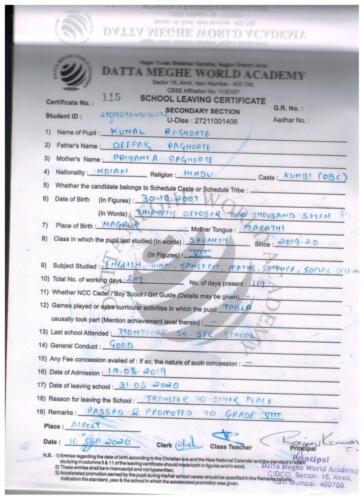 DATTA MEGHE WORLD ACADEMY
Sector 16, Airoli, Navi Mumbai - 400 708.
DATTA MEGHE WORLD ACADEMY
Sector 16, Airoli, Navi Mumbai - 400 708.
CBSE Affiliation No.: 1130337
Certificate No. : 115 SCHOOL LEAVING CERTIFICATE
SECONDARY SECTION G.R. No. :
Student ID : U-Dise : 27211001406 Aadhar No. :
1) Name of Pupil : KUNAL RAGHORTE
2) Father's Name : DEEPAK RAGHORTE
3) Mother's Name : PRIYANKA RAGHORTE
4) Nationality : INDIAN Religion : HINDU Caste : KUNBI (OBC)
5) Whether the candidate belongs to Schedule Caste or Schedule Tribe :
6) Date of Birth (In Figures) : 30-10-2007
(In Words) : THIRTIETH OCTOBER TWO THOUSAND SEVEN
7) Place of Birth : NAGPUR Mother Tongue : MARATHI
8) Class in which the pupil last studied (In words) : SEVENTH Since : 2019-20
(In Figures) : VII
9) Subject Studied : ENGLISH, HINDI, SANSKRIT, MATHS, SCIENCE, SOCIAL SCIENCE
10) Total No. of working days : No. of days present :
11) Whether NCC Cadet / Boy Scout / Girl Guide (Details may be given) :
12) Games played or extra curricular activities in which the pupil : TABLA
usually took part (Mention achievement level therein) :
13) Last school Attended : SR. SEC. SCHOOL
14) General Conduct : GOOD
15) Any Fee concession availed : If so, the nature of such concession :
16) Date of Admission : 19-08-2019
17) Date of leaving school : 31-03-2020
18) Reason for leaving the School : TRANSFER TO OTHER PLACE
19) Remarks : PASSED & PROMOTED TO GRADE VIII
Place : AIROLI
Date : 10 SEP 2020 Clerk Class Teacher Principal
Principal
Datta Meghe World Academy
CIDCO, Sector-16, Airoli,
Navi Mumbai - 400708.
N.B. : 1) Entries regarding the date of birth according to the Christian era and the New National Calendar and the standard in
studying in columns 6 & 11 of the leaving certificate should made both in figures and in word.
2) These entries shall be in manuscript and not typewritten.
3) Accelerated promotion earned by the pupil during his/her school career should be specified in the Remarks column
indication the standard, year & the school in which the accelerated promotion was given.